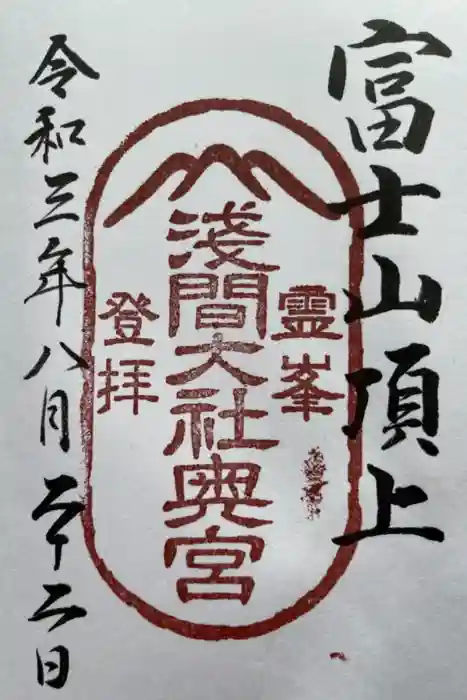 富士山頂上
霊峯
浅間大社奥宮
登拝
令和三年八月二十二日